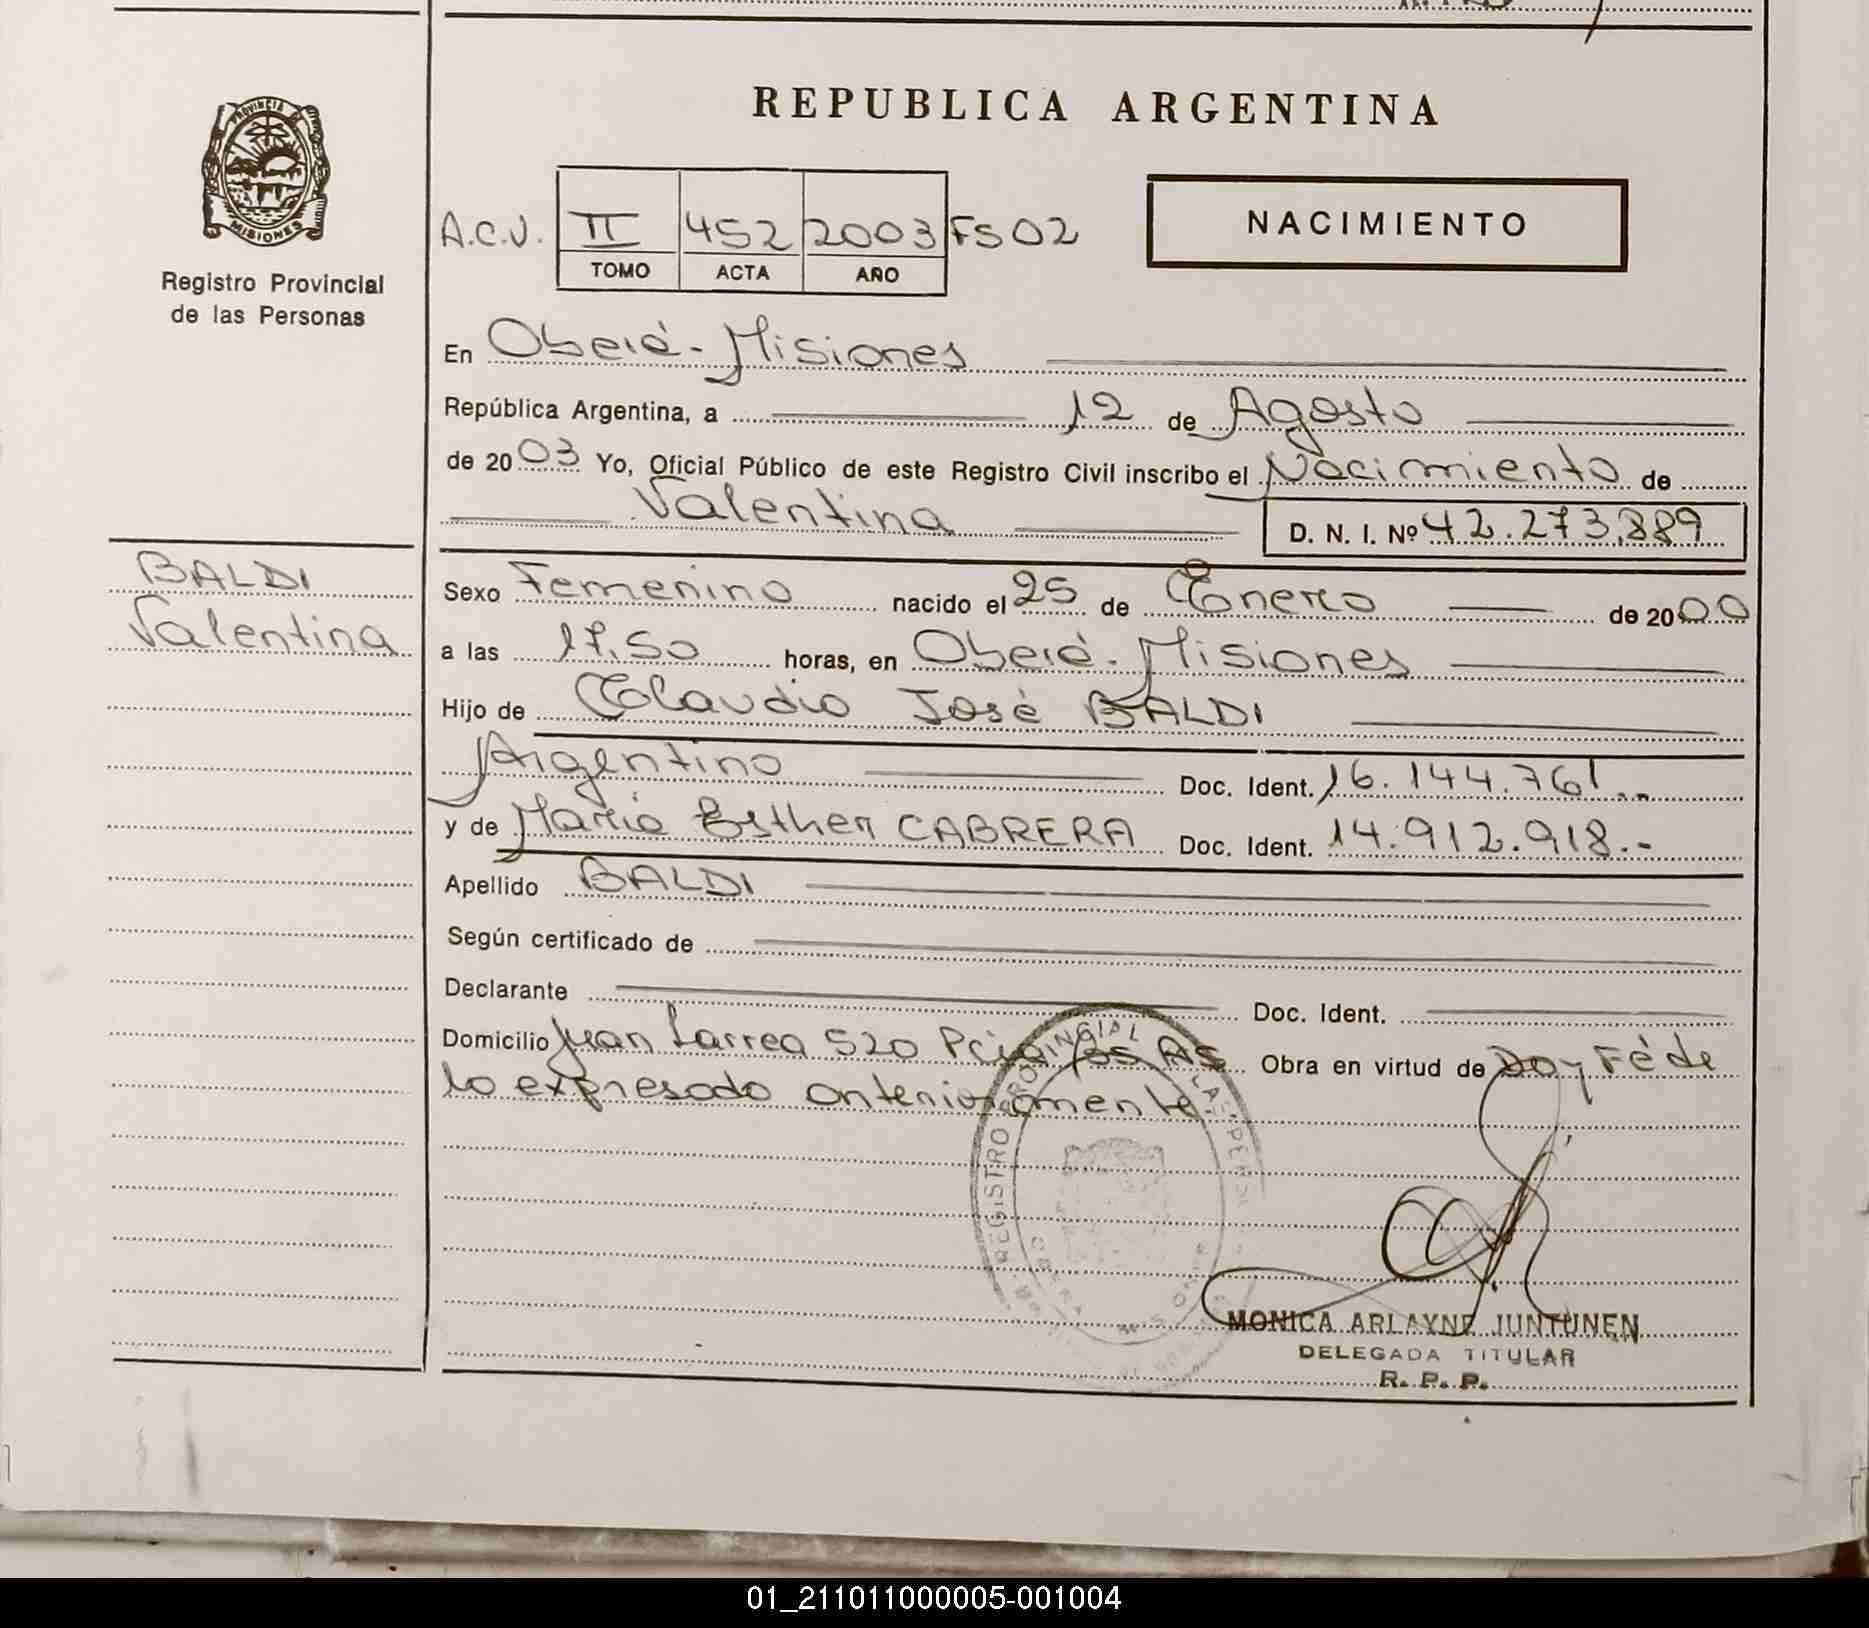 REPUBLICA ARGENTINA
PROVINCIA DE
MISIONES
Registro Provincial
de las Personas
A.C.V. II 452 2003 FS 02
TOMO ACTA AÑO
NACIMIENTO
En Oberá - Misiones
República Argentina, a 12 de Agosto
de 2003 Yo, Oficial Público de este Registro Civil inscribo el Nacimiento de
Valentina D. N. I. Nº 42.273.889
BALDI
Valentina
Sexo Femenino nacido el 25 de Enero de 2000
a las 17.50 horas, en Oberá - Misiones
Hijo de Claudio José BALDI
Argentino Doc. Ident. 16.144.761..
y de María Esther CABRERA Doc. Ident. 14.912.918.-
Apellido BALDI
Según certificado de
Declarante Doc. Ident.
Domicilio Juan Larrea 520 Obra en virtud de Doy Fé de
lo expresado anteriormente.
REGISTRO PROVINCIAL LAS PERS
OBERA
MONICA ARLAYNE JUNTUNEN
DELEGADA TITULAR
R. P. P.
01_211011000005-001004